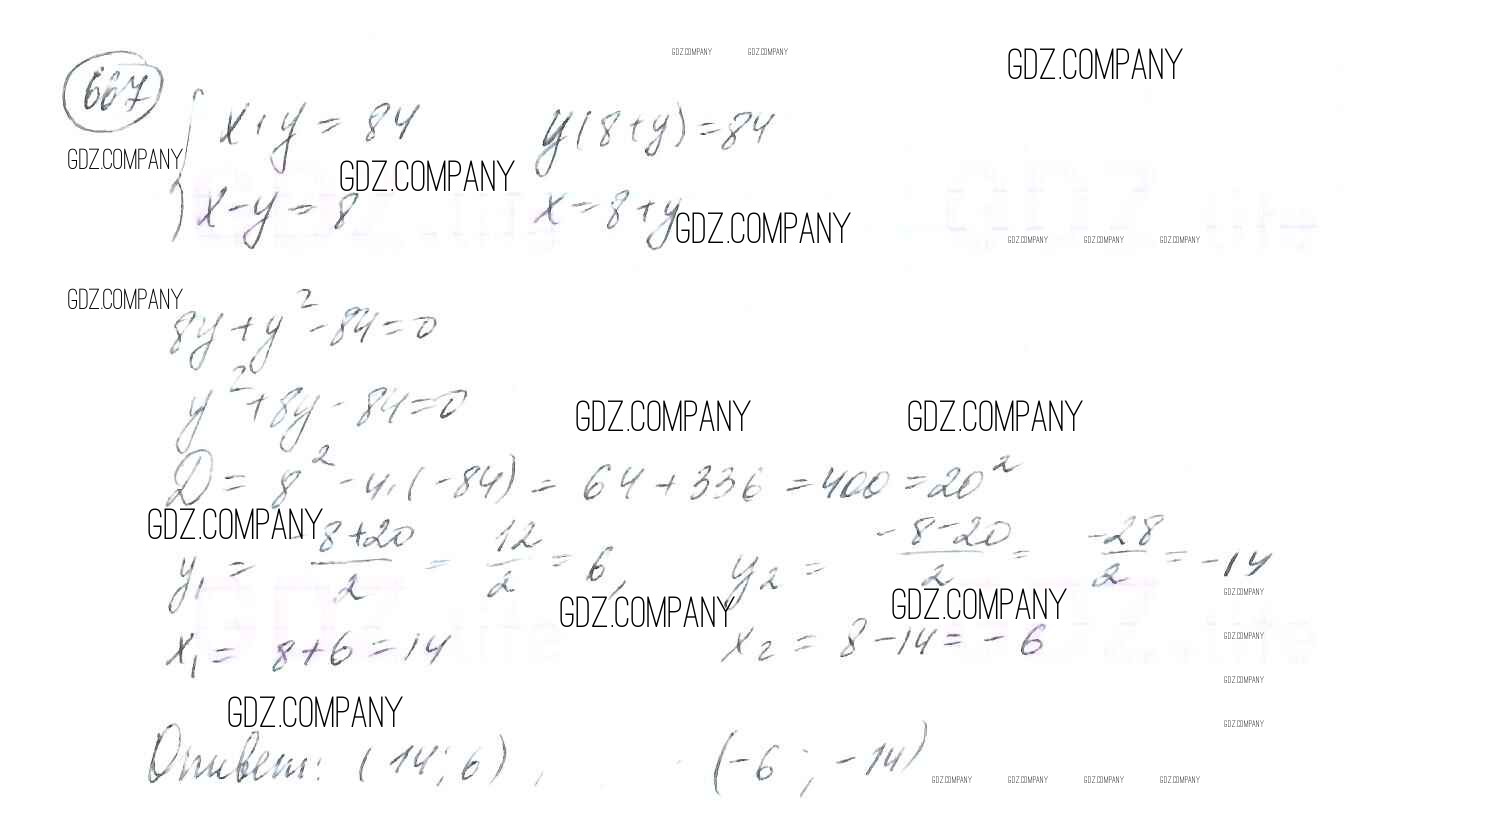 GDZ.COMPANY GDZ.COMPANY GDZ.COMPANY
667
x · y = 84 y(8+y)=84
GDZ.COMPANY GDZ.COMPANY
x-y=8 x=8+y GDZ.COMPANY
GDZ.COMPANY GDZ.COMPANY GDZ.COMPANY
GDZ.COMPANY
8y+y²-84=0
y²+8y-84=0
GDZ.COMPANY GDZ.COMPANY
D = 8² - 4·(-84) = 64 + 336 = 400 = 20²
GDZ.COMPANY
y₁ = -8+20/2 = 12/2 = 6, y₂ = -8-20/2 = -28/2 = -14
GDZ.COMPANY GDZ.COMPANY GDZ.COMPANY
x₁ = 8+6=14 x₂ = 8-14=-6
GDZ.COMPANY
GDZ.COMPANY
GDZ.COMPANY GDZ.COMPANY
Ответ: (14; 6), (-6; -14)
GDZ.COMPANY GDZ.COMPANY GDZ.COMPANY GDZ.COMPANY